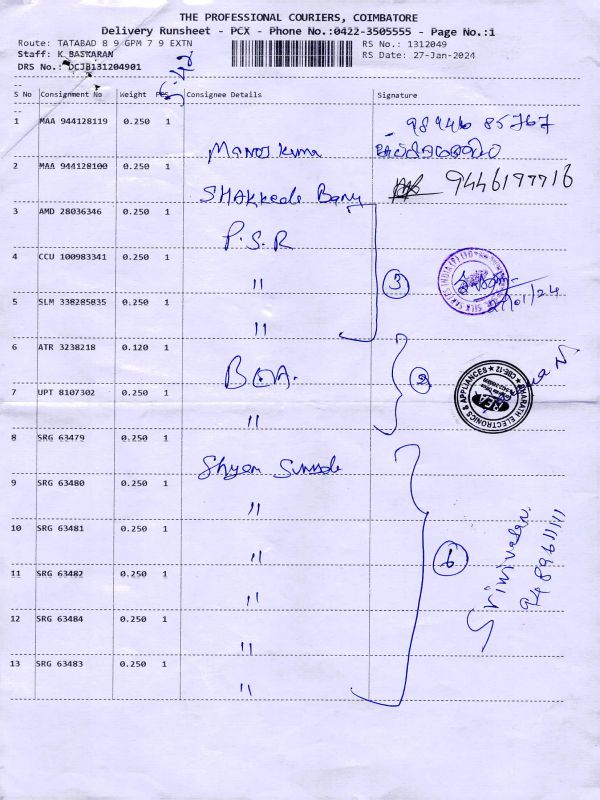 THE PROFESSIONAL COURIERS, COIMBATORE
Delivery Runsheet - PCX - Phone No.:0422-3505555 - Page No.:1
Route: TATABAD 8 9 GPM 7 9 EXTN
RS No.: 1312049
Staff: K BASKARAN
RS Date: 27-Jan-2024
DRS No.: DCJB131204901
S No Consignment No Weight PCS Consignee Details Signature
1 MAA 944128119 0.250 1 Manoj Kumar 98946 85767
2 MAA 944128100 0.250 1 SHAKKeela Banu 9446197716
3 AMD 28036346 0.250 1 P.S.R
4 CCU 100983341 0.250 1 " 3
5 SLM 338285835 0.250 1 " 27/01/24
6 ATR 3238218 0.120 1 B.E.A. 2
BHARATH ELECTRONICS & APPLIANCES CBE-12
BEA
7 UPT 8107302 0.250 1 "
8 SRG 63479 0.250 1 Shyam
9 SRG 63480 0.250 1 "
10 SRG 63481 0.250 1 " 6 Srinivasan
11 SRG 63482 0.250 1 "
12 SRG 63484 0.250 1 "
13 SRG 63483 0.250 1 "